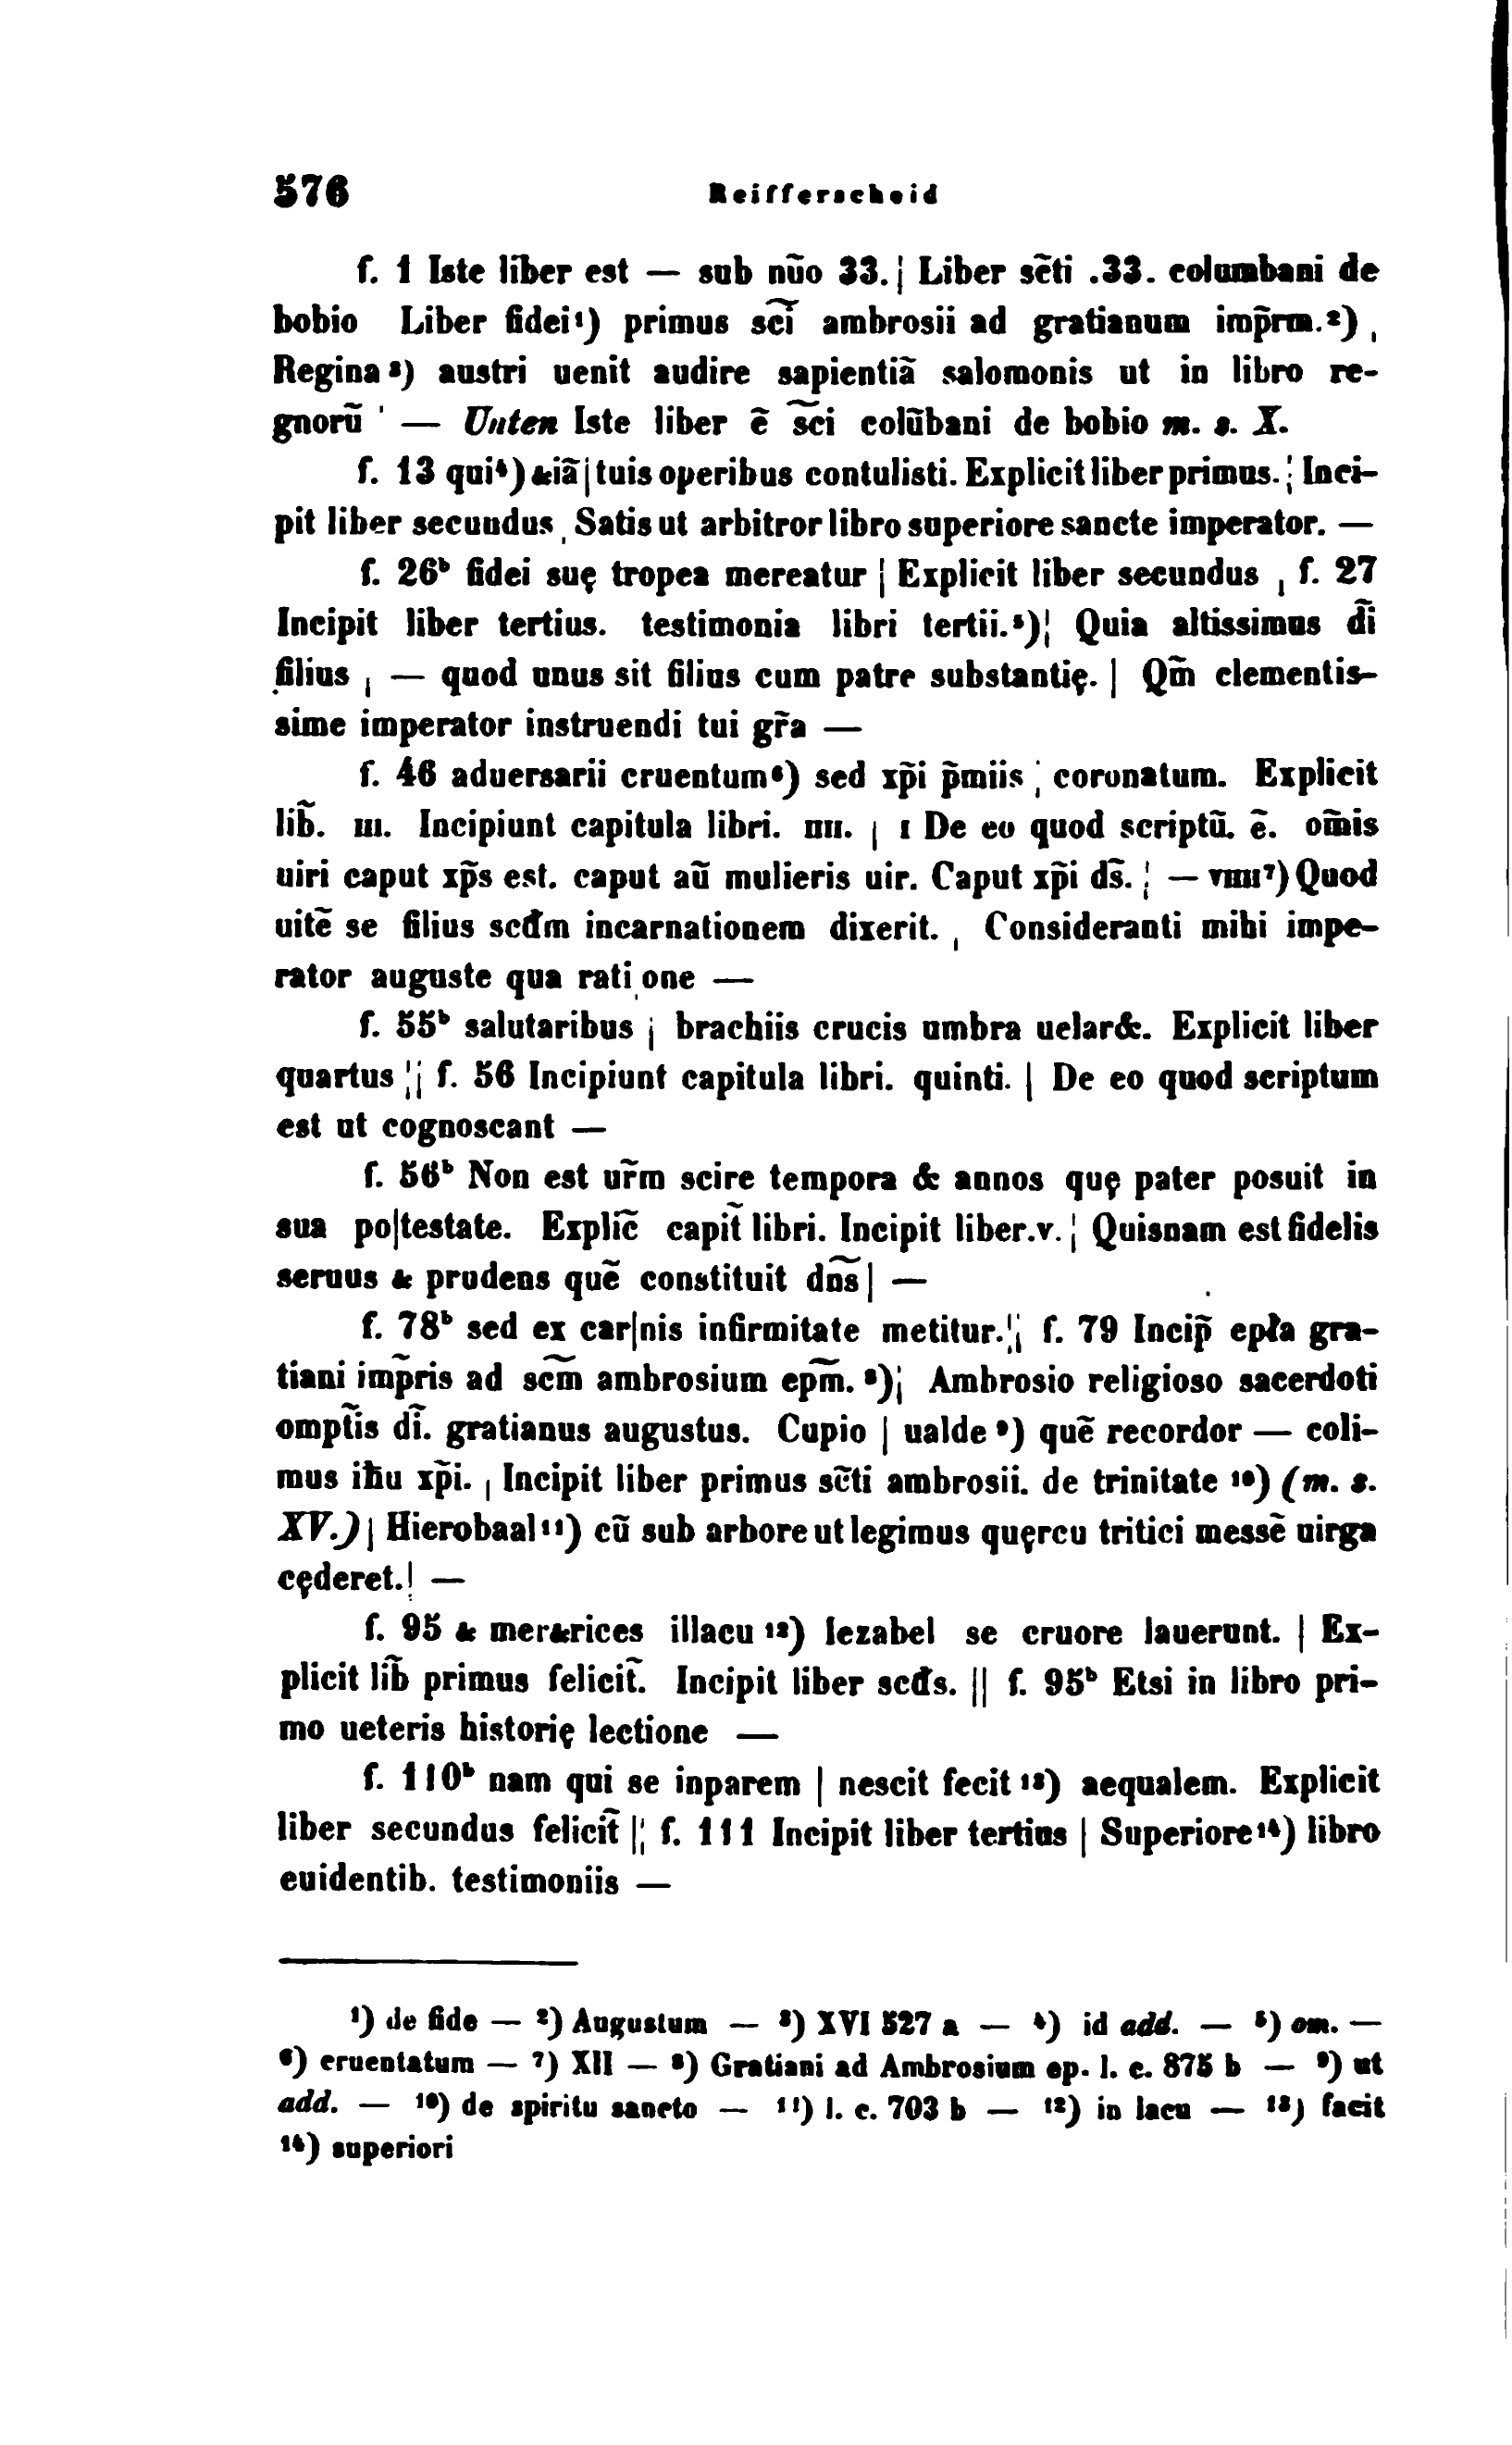 576 Reifferscheid
f. 1 Iste liber est — sub nūo 33. | Liber sc̄ti .33. columbani de
bobio Liber fidei¹) primus sc͠i ambrosii ad gratianum imp̃rm.²) |
Regina³) austri uenit audire sapientiā salomonis ut in libro re-
gnorū | — Unten Iste liber ē s͠ci colūbani de bobio m. s. X.
f. 13 qui⁴) &iā | tuis operibus contulisti. Explicit liber primus. | Inci-
pit liber secundus | Satis ut arbitror libro superiore sancte imperator. —
f. 26ᵇ fidei suę tropea mereatur | Explicit liber secundus | f. 27
Incipit liber tertius. testimonia libri tertii.⁵) | Quia altissimus d̃i
filius | — quod unus sit filius cum patre substantię. | Qm̃ clementis-
sime imperator instruendi tui gr̃a —
f. 46 aduersarii cruentum⁶) sed xp̃i p̃miis | coronatum. Explicit
lib̃. III. Incipiunt capitula libri. IIII. | I De eo quod scriptū. ē. om̃is
uiri caput xp̃s est. caput aū mulieris uir. Caput xp̃i ds̃. | — VIIII⁷) Quod
uitē se filius scđm incarnationem dixerit. | Consideranti mihi impe-
rator auguste qua rati|one —
f. 55ᵇ salutaribus | brachiis crucis umbra uelar&. Explicit liber
quartus || f. 56 Incipiunt capitula libri. quinti. | De eo quod scriptum
est ut cognoscant —
f. 56ᵇ Non est ur̃m scire tempora & annos quę pater posuit in
sua po|testate. Explic̃ capit̃ libri. Incipit liber.v. | Quisnam est fidelis
seruus & prudens quē constituit dñs | —
f. 78ᵇ sed ex car|nis infirmitate metitur. || f. 79 Incip̃ epła gra-
tiani imp̃ris ad sc͠m ambrosium ep͠m. ⁸) | Ambrosio religioso sacerdoti
ompt̃is dĩ. gratianus augustus. Cupio | ualde ⁹) quē recordor — coli-
mus iħu xp̃i. | Incipit liber primus sc̃ti ambrosii. de trinitate ¹⁰) (m. s.
XV.) | Hierobaal¹¹) cū sub arbore ut legimus quęrcu tritici messē uirga
cęderet. | —
f. 95 & mer&rices illacu ¹²) Iezabel se cruore lauerunt. | Ex-
plicit lib̃ primus felicit̃. Incipit liber scđs. || f. 95ᵇ Etsi in libro pri-
mo ueteris historię lectione —
f. 110ᵇ nam qui se inparem | nescit fecit ¹³) aequalem. Explicit
liber secundus felicit̃ || f. 111 Incipit liber tertius | Superiore¹⁴) libro
euidentib. testimoniis —
¹) de fide — ²) Augustum — ³) XVI 527 a — ⁴) id add. — ⁵) om. —
⁶) cruentatum — ⁷) XII — ⁸) Gratiani ad Ambrosium ep. l. c. 875 b — ⁹) ut
add. — ¹⁰) de spiritu sancto — ¹¹) l. c. 703 b — ¹²) in lacu — ¹³) facit
¹⁴) superiori